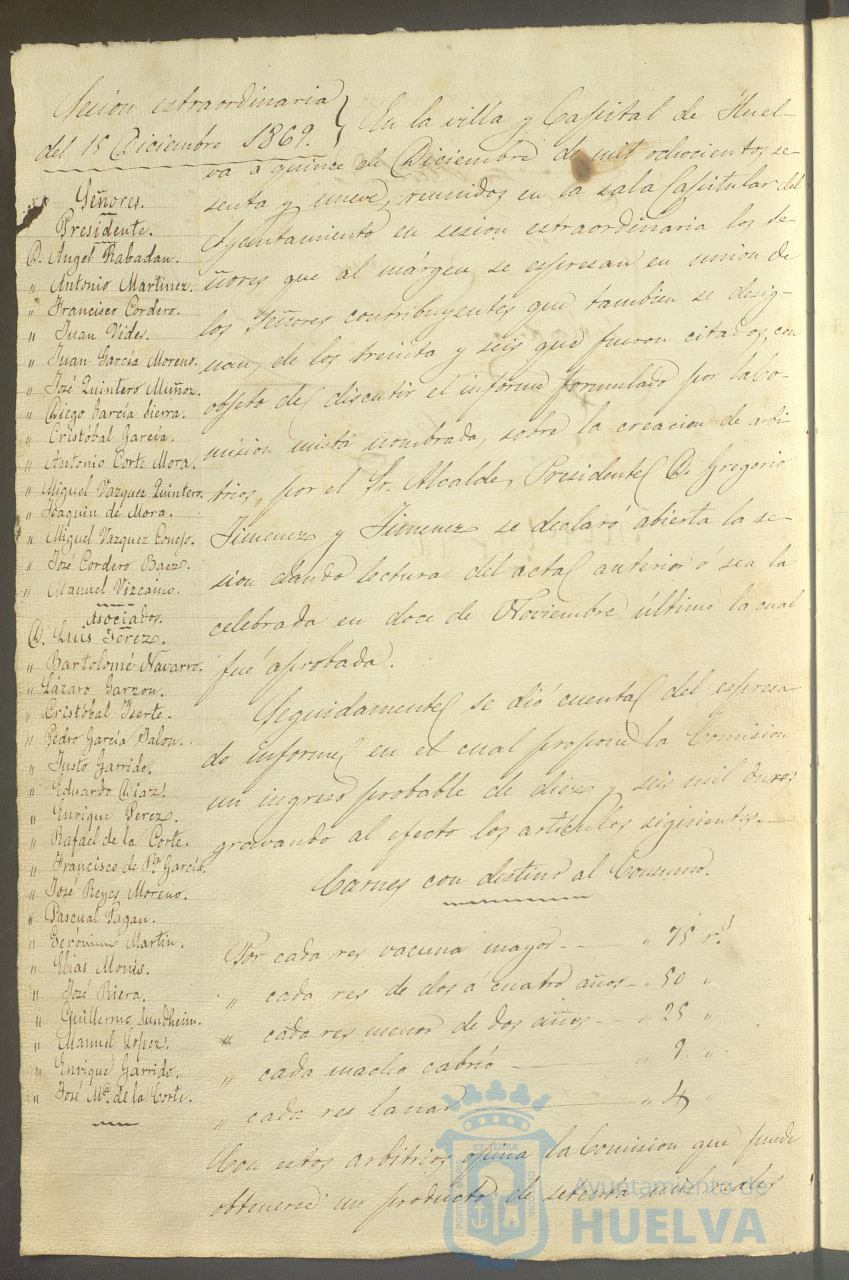 Sesion extraordinaria
del 15 Diciembre 1869.
Señores.
Presidente.
D. Angel Rabadan.
" Antonio Martinez.
" Francisco Cordero.
" Juan Vides.
" Juan García Moreno.
" José Quintero Muñoz.
" Diego García Sierra.
" Cristóbal García.
" Antonio Corte Mora.
" Miguel Vazquez Quintero.
" Joaquin de Mora.
" Miguel Vazquez Conejo.
" José Cordero Baez.
" Manuel Vizcaino.
Asociados.
D. Luis Tellez.
" Bartolomé Navarro.
" Lázaro Garzon.
" Cristóbal Iserte.
" Pedro García Jalon.
" Justo Garrido.
" Eduardo Diaz.
" Enrique Perez.
" Rafael de la Corte.
" Francisco de Pª García.
" José Reyes Moreno.
" Pascual Pagan.
" Gerónimo Martin.
" Elias Monis.
" José Riera.
" Guillermo Sundheim.
" Manuel Lopez.
" Enrique Garrido.
" José Mª. de la Corte.
En la villa y Capital de Huel-
va a quince de Diciembre de mil ochocientos se-
senta y nueve, reunidos en la sala Capitular del
Ayuntamiento en sesion extraordinaria los Se-
ñores que al márgen se espresan en union de
los Señores contribuyentes que tambien se desig-
nan, de los treinta y seis que fueron citados, con
objeto de discutir el informe formulado por la Co-
mision mista nombrada, sobre la creacion de arbi
trios, por el Sr. Alcalde Presidente D. Gregorio
Jimenez y Jimenez se declaró abierta la se-
sion dando lectura del acta anterior ó sea la
celebrada en doce de Noviembre último la cual
fué aprobada.
Seguidamente se dió cuenta del espresa
do informe en el cual propone la Comision
un ingreso probable de diez y seis mil duros
gravando al efecto los artículos siguientes.
Carnes con destino al Consumo.
Por cada res vacuna mayor " 75 r.s
" cada res de dos á cuatro años " 50 "
" cada res menor de dos años " 25 "
" cada macho cabrío " 9 "
" cada res lanar " 4 "
Con estos arbitrios opina la Comision que puede
obtenerse un producto de setenta mil reales
Ayuntamiento de
HUELVA